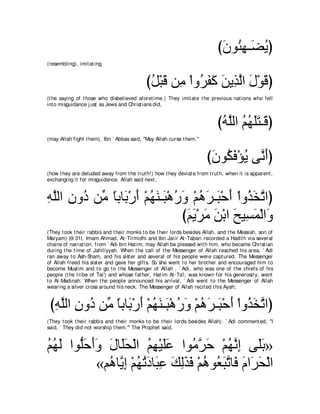 (يُضَـهِئُونَ)
(resembling), imitating,
(قَوْلَ الَّذِينَ كَفَرُواْ مِن قَبْلُ)
(the saying of those who disbelieved aforetime.) They imitate the previous nations who fell into misguidance just as Jews and Christians did,
(قَـتَلَهُمُ اللَّهُ)
(may Allah fight them), Ibn `Abbas said, "May Allah curse them."
(أَنَّى يُؤْفَكُونَ)
(how they are deluded away from the truth!) how they deviate from truth, when it is apparent, exchanging it for misguidance. Allah said next,
(اتَّخَذُواْ أَحْبَـرَهُمْ وَرُهْبَـنَهُمْ أَرْبَاباً مِّن دُونِ اللَّهِ وَالْمَسِيحَ ابْنَ مَرْيَمَ)
(They took their rabbis and their monks to be their lords besides Allah, and the Messiah, son of Maryam) (9:31). Imam Ahmad, At-Tirmidhi and Ibn Jarir At-Tabari recorded a Hadith via several chains of narration, from `Adi bin Hatim, may Allah be pleased with him, who became Christian during the time of Jahiliyyah. When the call of the Messenger of Allah reached his area, `Adi ran away to Ash-Sham, and his sister and several of his people were captured. The Messenger of Allah freed his sister and gave her gifts. So she went to her brother and encouraged him to become Muslim and to go to the Messenger of Allah . `Adi, who was one of the chiefs of his people (the tribe of Tai') and whose father, Hatim At-Ta'i, was known for his generosity, went to Al-Madinah. When the people announced his arrival, `Adi went to the Messenger of Allah wearing a silver cross around his neck. The Messenger of Allah recited this Ayah;
(اتَّخَذُواْ أَحْبَـرَهُمْ وَرُهْبَـنَهُمْ أَرْبَاباً مِّن دُونِ اللَّهِ)
(They took their rabbis and their monks to be their lords besides Allah). `Adi commented, "I said, `They did not worship them.'" The Prophet said,
«بَلَى إِنَّهُمْ حَرَّمُوا عَلَيْهِمُ الْحَلَالَ وَأَحَلُّوا لَهُمُ الْحَرَامَ فَاتَّبَعُوهُمْ فَذَلِكَ عِبَادَتُهُمْ إِيَّاهُم»